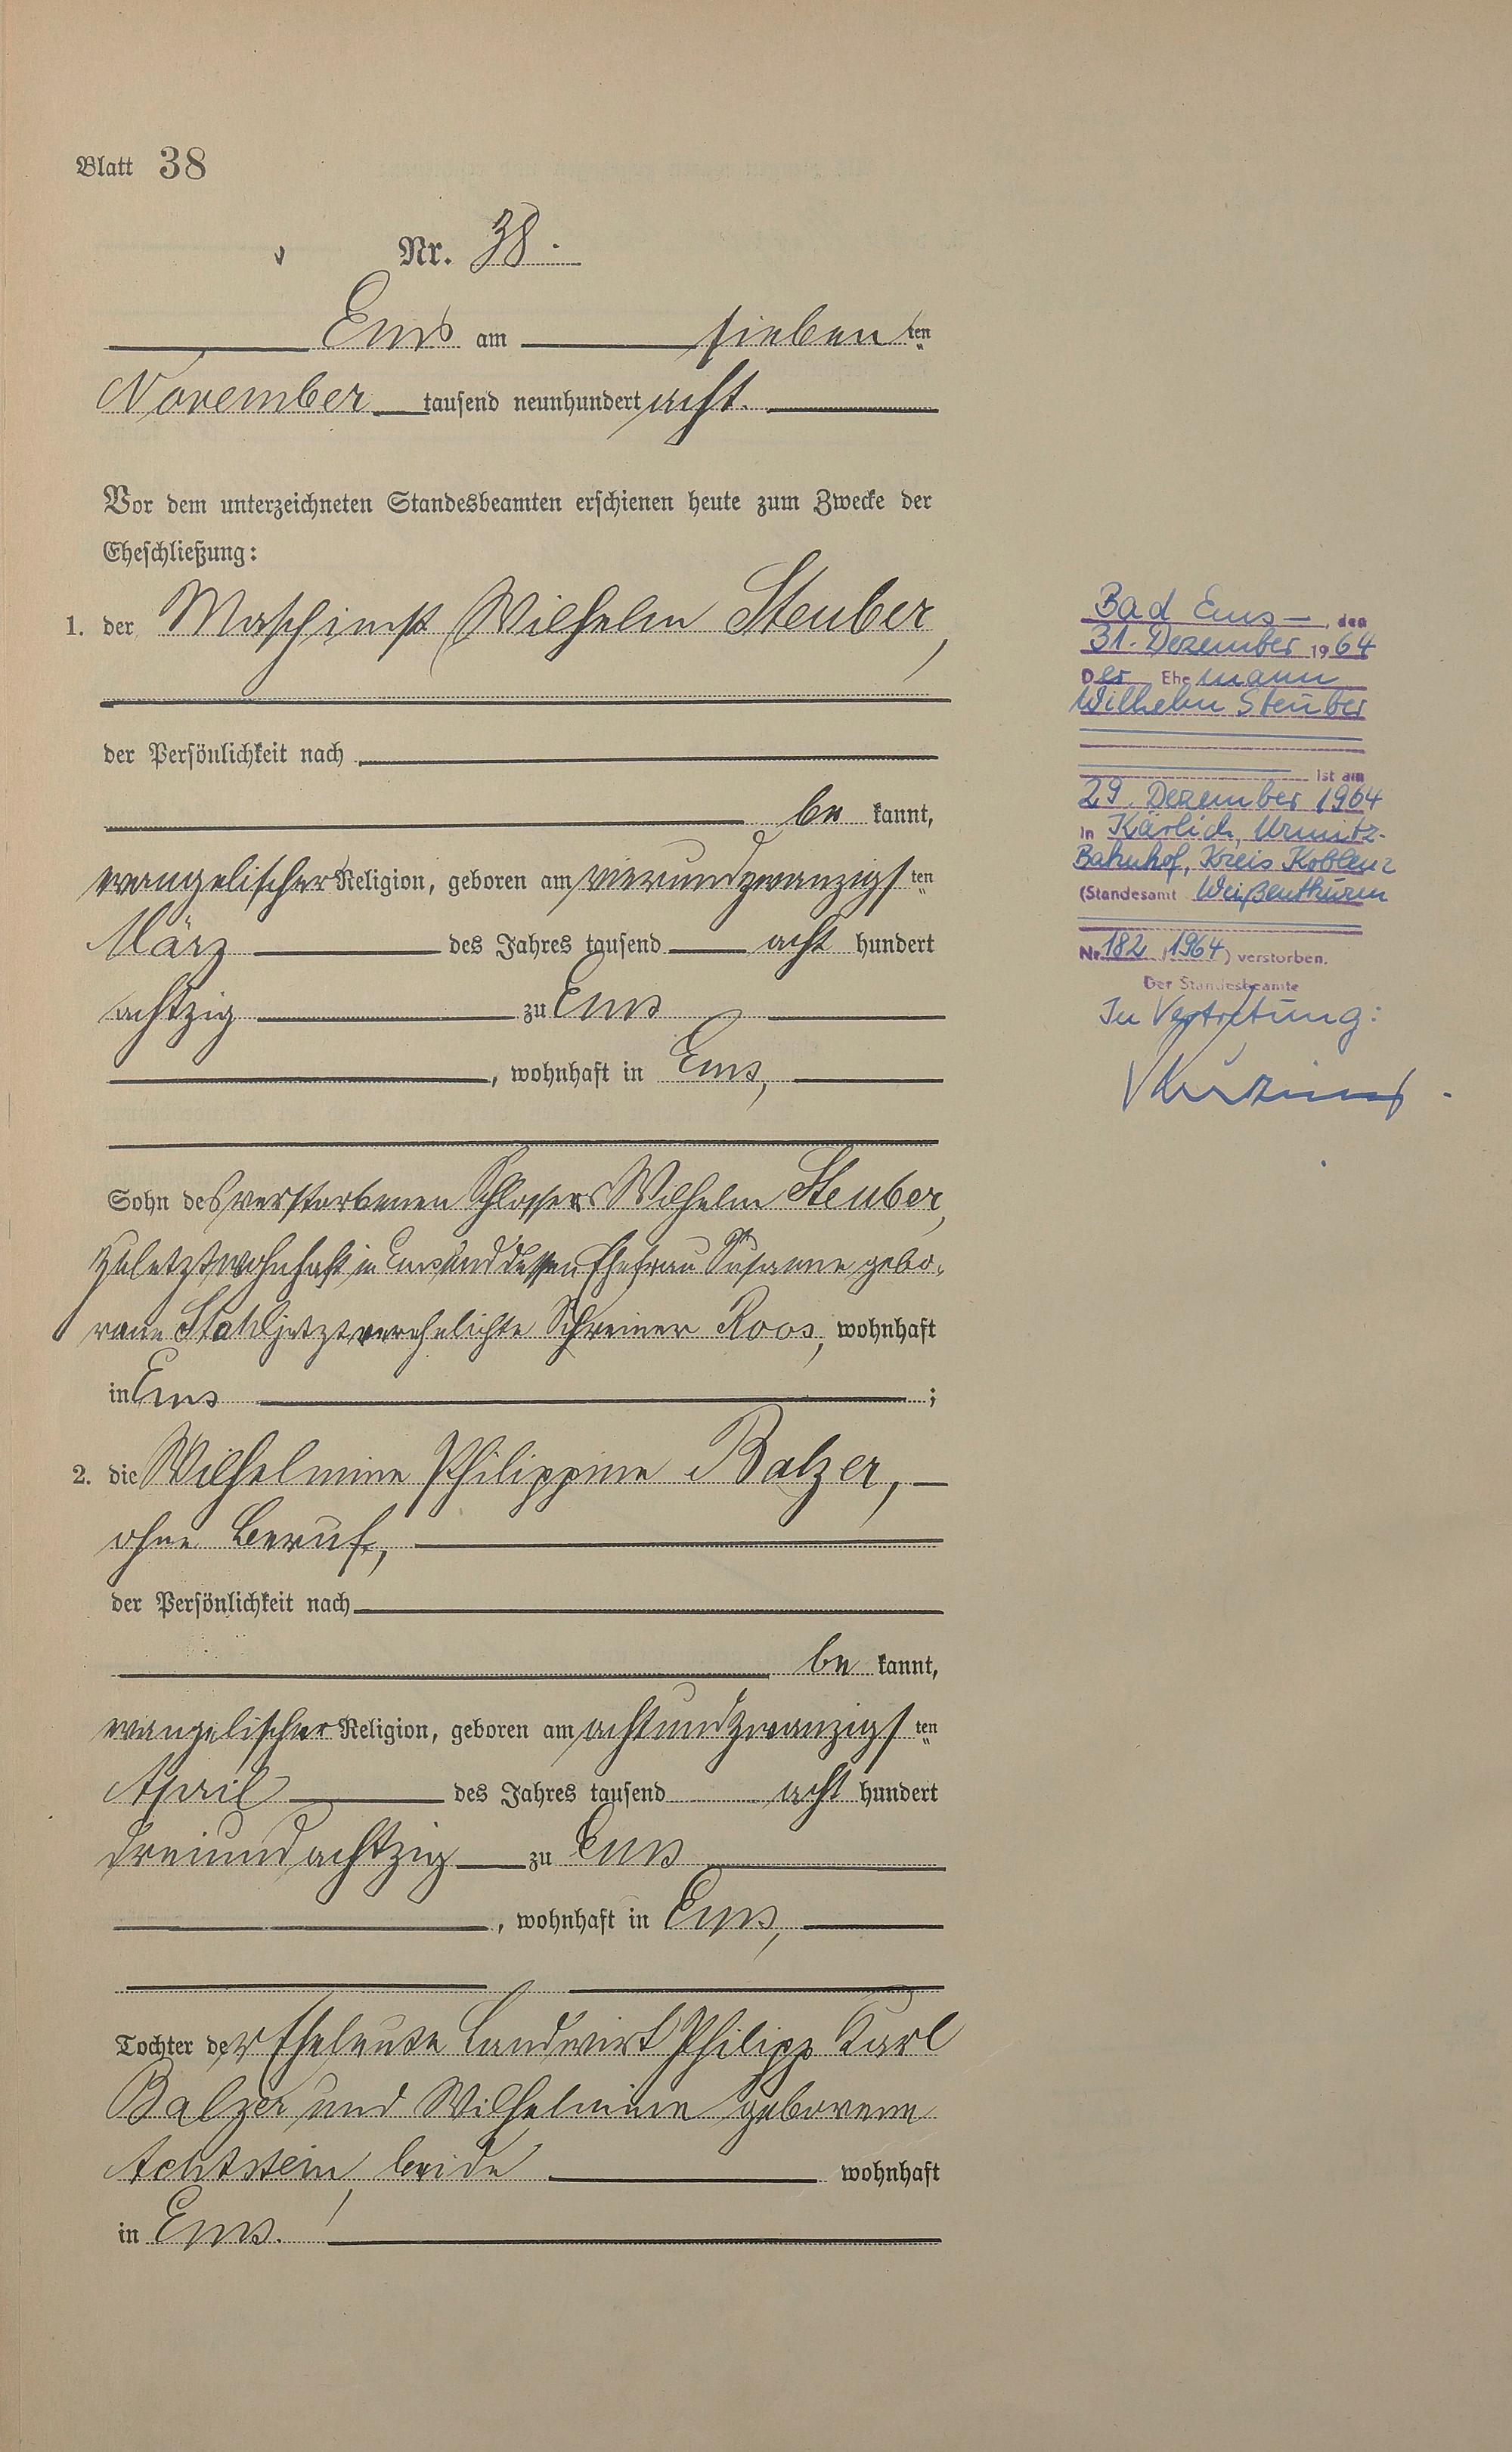 Blatt 38
Nr. 38.
Ems am sieben ten
November tausend neunhundert acht.
Vor dem unterzeichneten Standesbeamten erschienen heute zum Zwecke der
Eheschließung:
1. der Maschinist Wilhelm Steuber,
der Persönlichkeit nach
be kannt,
evangelischer Religion, geboren am vierundzwanzigs ten
März des Jahres tausend acht hundert
achtzig zu Ems
, wohnhaft in Ems,
Sohn des verstorbenen Schlossers Wilhelm Steuber,
zuletzt wohnhaft in Ems und dessen Ehefrau Susanne gebo-
rene Stahl jetzt verehelichte Schreiner Roos, wohnhaft
in Ems ;
2. die Wilhelmine Philippine Balzer,
ohne Beruf,
der Persönlichkeit nach
be kannt,
evangelischer Religion, geboren am achtundzwanzigs ten
April des Jahres tausend acht hundert
dreiundachtzig zu Ems
, wohnhaft in Ems,
Tochter der Eheleute Landwirt Philipp Karl
Balzer und Wilhelmine geborene
Achtstein, beide wohnhaft
in Ems.
Bad Ems, den
31. Dezember 1964
Der Ehemann
Wilhelm Steuber
ist am
29. Dezember 1964
in Kärlich, Urmitz-
Bahnhof, Kreis Koblenz
(Standesamt Weißenthurm
Nr. 182 / 1964) verstorben.
Der Standesbeamte
In Vertretung: